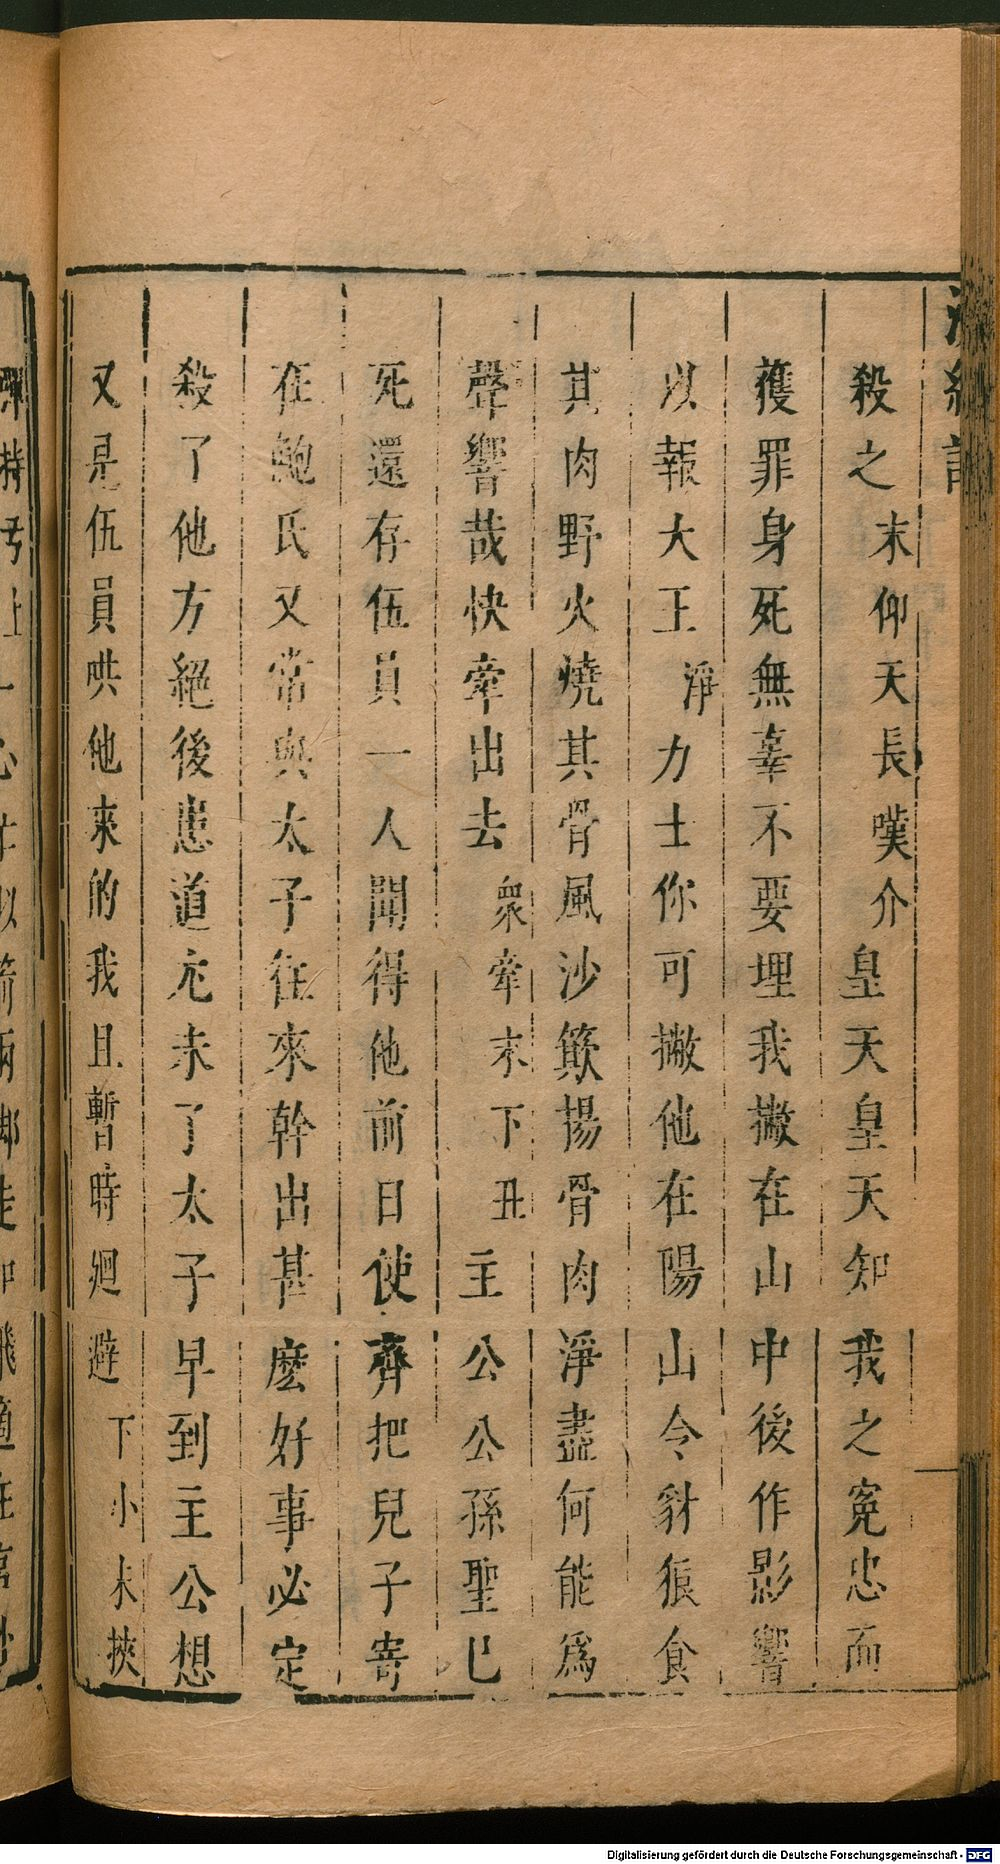 浣紗記
殺之末仰天長嘆介皇天皇天知我之寃忠而
獲罪身死無辜不要埋我撇在山中後作影響
以報大王淨力士你可撇他在陽山令豺狼食
其肉野火燒其骨風沙簸揚骨肉淨盡何能爲
聲響哉快牽出去衆牽末下丑主公公孫聖已
死還存伍員一人聞得他前日使齊把兒子寄
在鮑氏又常與太子往來幹出甚麽好事必定
殺了他方絕後患道尤未了太子早到主公想
又是伍員哄他來的我且暫時廻避下小末挾
Digitalisierung gefördert durch die Deutsche Forschungsgemeinschaft - DFG